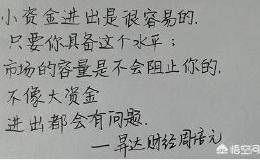 小资金进出是很容易的.
只要你具备这个水平;
市场的容量是不会阻止你的.
不像大资金
进出都会有问题.
—昇达财经周培元
悟空问答